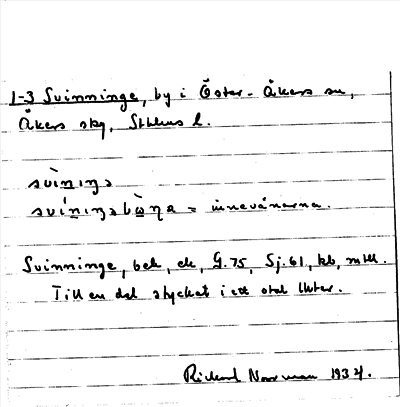 1-3 Svinninge, by i Öster-Åkers sn,
Åkers skg, Sthlms l.
svìniŋə
= innevånarna.
Svinninge, beb, ek, G.75, Sj.61, kb, mtll.
Till en del styckat i ett otal lhter.
Rickard Norrman 1934.